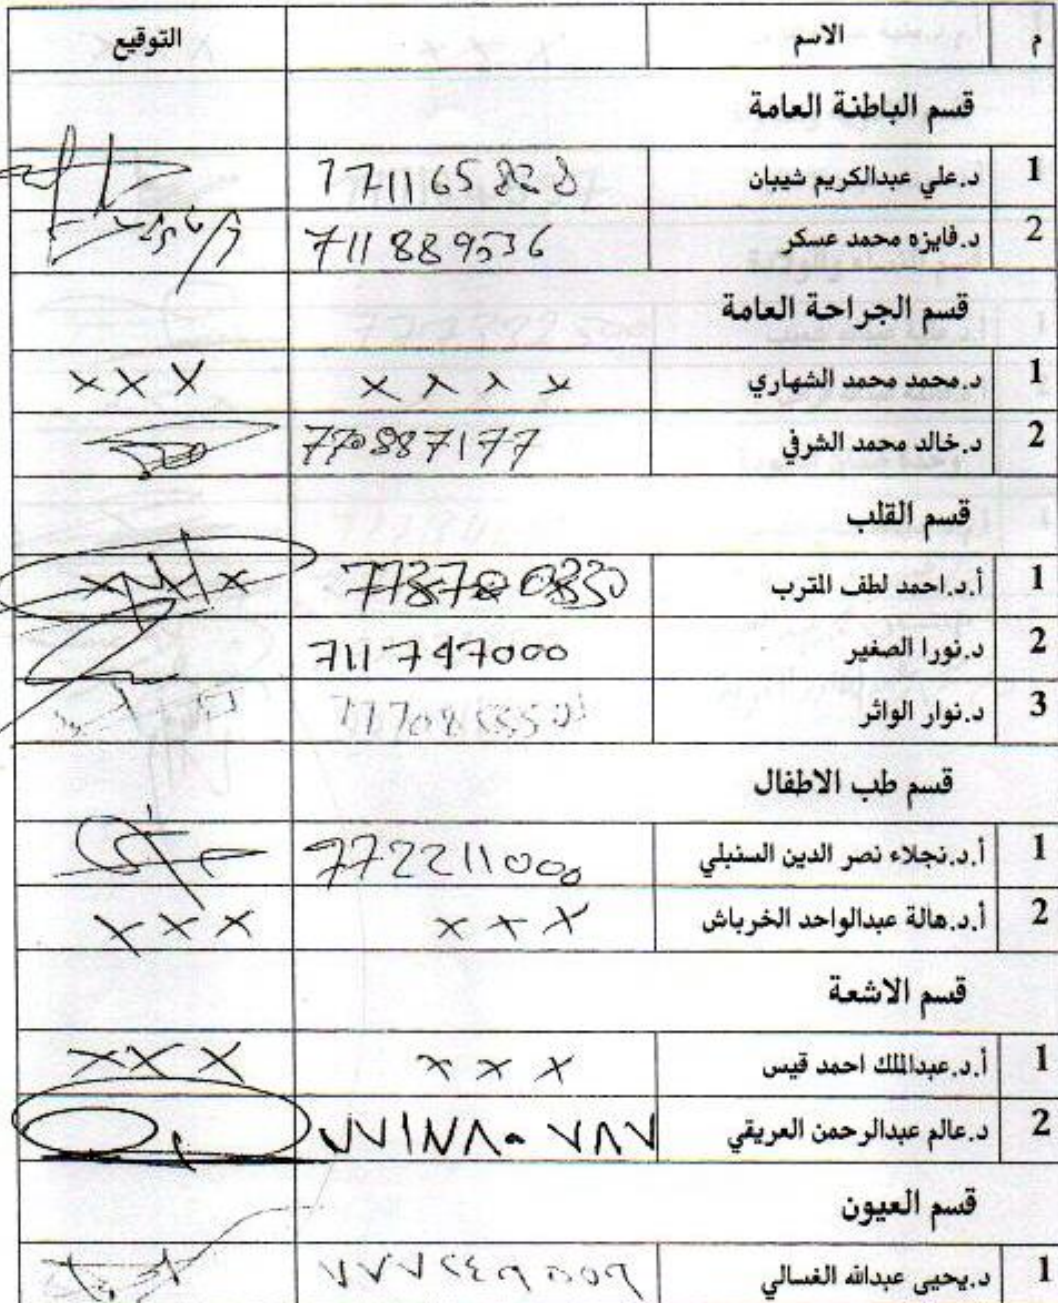 م الاسم التوقيع
قسم الباطنة العامة
1 د.علي عبدالكريم شيبان
2 د.فايزه محمد عسكر 711889536
قسم الجراحة العامة
1 د.محمد محمد الشهاري x x x x x x x
2 د.خالد محمد الشرفي 770887177
قسم القلب
1 أ.د.احمد لطف المترب
2 د.نورا الصغير 711747000
3 د.نوار الواثر
قسم طب الاطفال
1 أ.د.نجلاء نصر الدين السنبلي 772211000
2 أ.د.هالة عبدالواحد الخرباش x x x x x x
قسم الاشعة
1 أ.د.عبدالملك احمد قيس x x x x x x
2 د.عالم عبدالرحمن العريقي
قسم العيون
1 د.يحيى عبدالله الغسالي